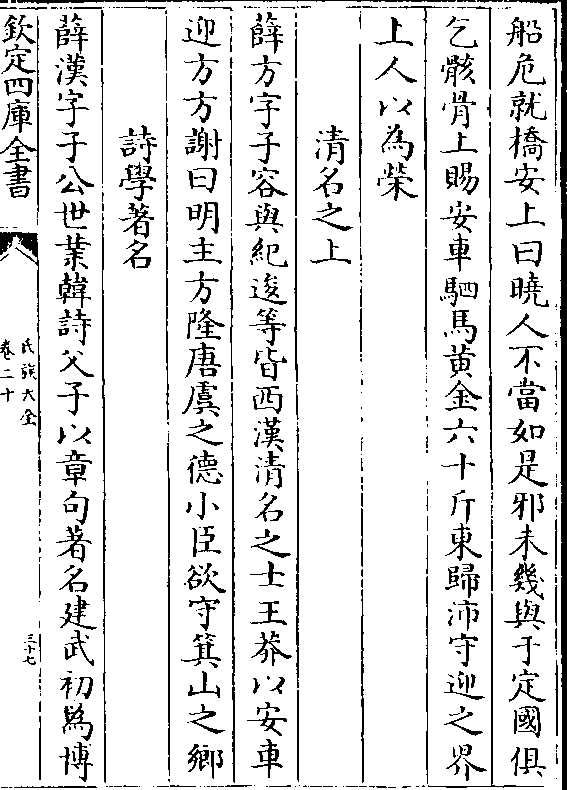 船危就橋安上曰曉人不當如是邪未幾與于定國俱
乞骸骨上賜安車駟馬黃金六十斤東歸沛守迎之界
上人以為榮
清名之上
薛方字子容與紀逡等皆西漢清名之士王莽以安車
迎方方謝曰明主方隆唐虞之德小臣欲守箕山之鄉
詩學著名
薛漢字子公世業韓詩父子以章句著名建武初為博
欽定四庫全書
氏族大全
卷二十
三十七